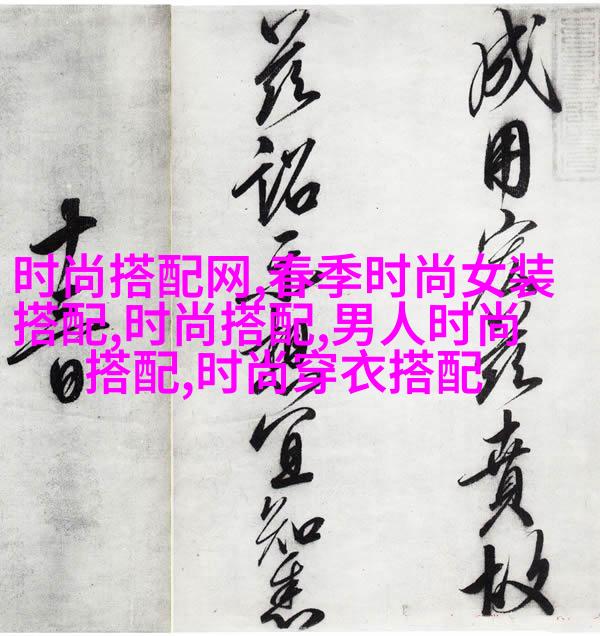 成用宏茲賁故
茲詔示想宜知悉
十日
时尚搭配网,春季时尚女装
搭配,时尚搭配,男人时尚
搭配,时尚穿衣搭配